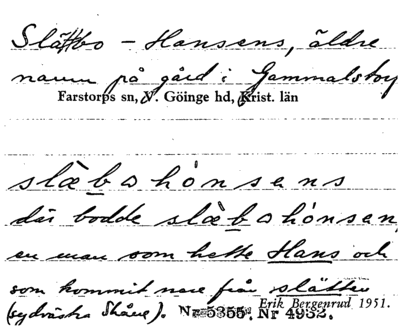 Slättbo – Hansens, äldre
namn på gård i Gammalstorp
Farstorps sn, V. Göinge hd, Krist. län
slæbohònsens
där bodde slæbohònsen,
en man som hette Hans och
som kommit ned från slätten
(sydvästra Skåne).
Erik Bergenrud 1951.
Nr 5355. Nr 4932.